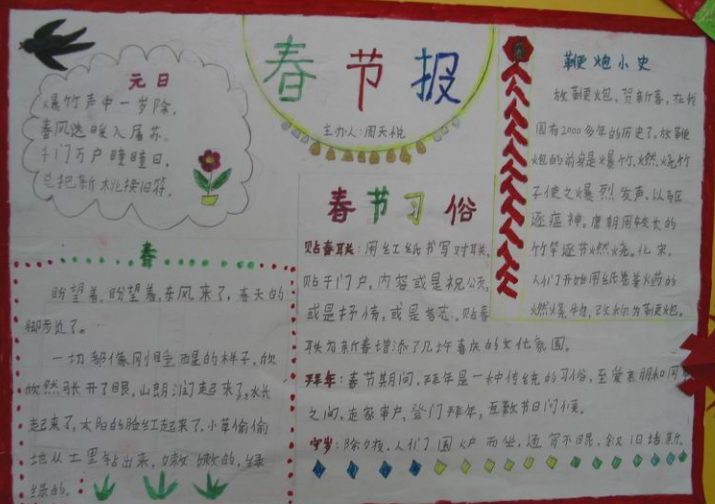 春节报
主办人:周天悦
元日
爆竹声中一岁除,
春风送暖入屠苏。
千门万户曈曈日,
总把新桃换旧符。
春
盼望着,盼望着,东风来了,春天的
脚步近了。
一切都像刚睡醒的样子,欣
欣然张开了眼,山朗润起来了,水长
起来了,太阳的脸红起来了。小草偷偷
地从土里钻出来,嫩嫩的,绿
绿的。
春节习俗
贴春联:用红纸书写对联,
贴于门户,内容或是祝颂,
或是抒情,或是言志。贴春
联为新春增添了几许喜庆的文化氛围。
拜年:春节期间,拜年是一种传统的习俗,至爱亲朋和同
之间,走家串户,登门拜年,互致节日问候。
守岁:除夕夜,人们围炉而坐,通宵不眠,叙旧话新。
鞭炮小史
放鞭炮,贺新春,在我
国有2000多年的历史了。放鞭
炮的前身是爆竹,燃烧竹
子使之爆烈发声,以驱
逐瘟神。唐朝用较长的
竹竿逐节燃烧。北宋,
人们开始用纸卷裹火药的
燃烧物,改称为鞭炮。